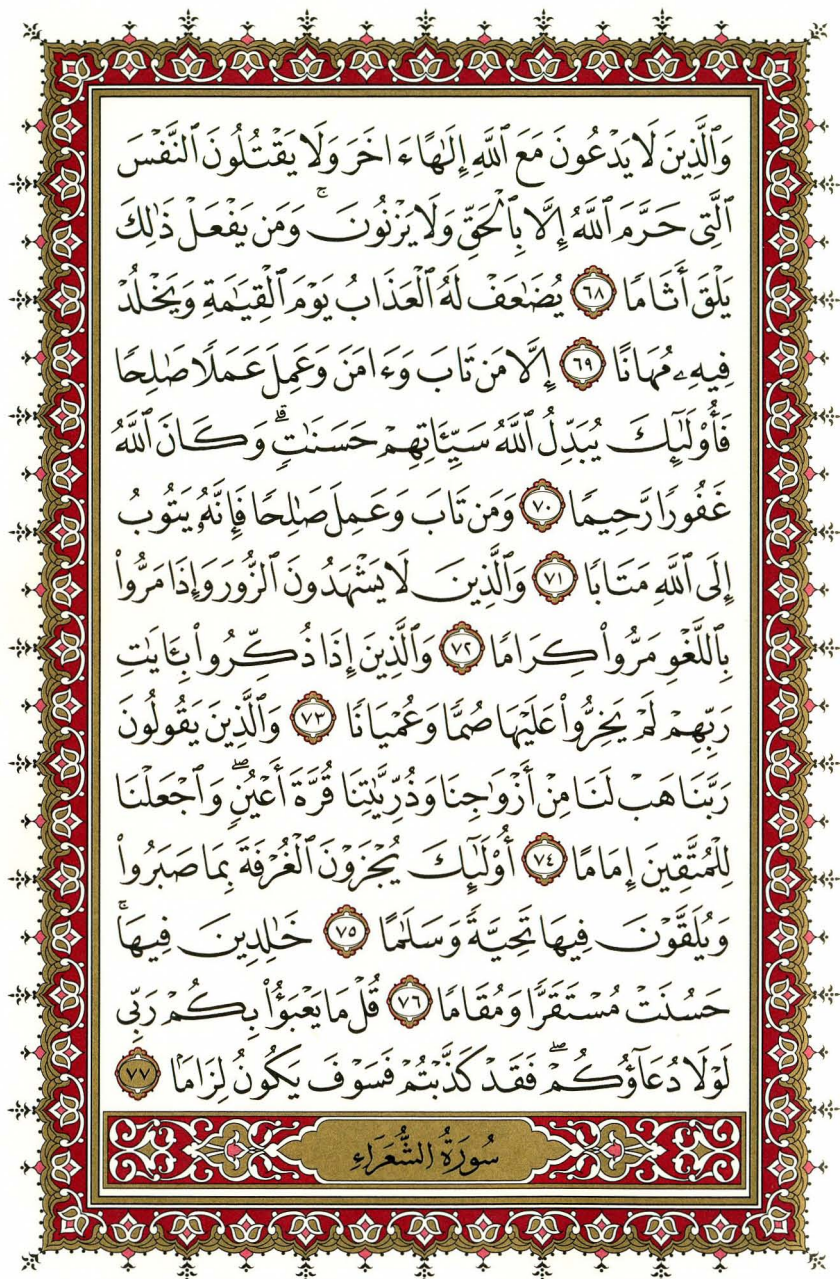 وَٱلَّذِينَ لَا يَدْعُونَ مَعَ ٱللَّهِ إِلَٰهًا ءَاخَرَ وَلَا يَقْتُلُونَ ٱلنَّفْسَ
ٱلَّتِى حَرَّمَ ٱللَّهُ إِلَّا بِٱلْحَقِّ وَلَا يَزْنُونَ ۚ وَمَن يَفْعَلْ ذَٰلِكَ
يَلْقَ أَثَامًا ٦٨ يُضَٰعَفْ لَهُ ٱلْعَذَابُ يَوْمَ ٱلْقِيَٰمَةِ وَيَخْلُدْ
فِيهِۦ مُهَانًا ٦٩ إِلَّا مَن تَابَ وَءَامَنَ وَعَمِلَ عَمَلًا صَٰلِحًا
فَأُو۟لَٰٓئِكَ يُبَدِّلُ ٱللَّهُ سَيِّـَٔاتِهِمْ حَسَنَٰتٍ ۗ وَكَانَ ٱللَّهُ
غَفُورًا رَّحِيمًا ٧٠ وَمَن تَابَ وَعَمِلَ صَٰلِحًا فَإِنَّهُۥ يَتُوبُ
إِلَى ٱللَّهِ مَتَابًا ٧١ وَٱلَّذِينَ لَا يَشْهَدُونَ ٱلزُّورَ وَإِذَا مَرُّوا۟
بِٱللَّغْوِ مَرُّوا۟ كِرَامًا ٧٢ وَٱلَّذِينَ إِذَا ذُكِّرُوا۟ بِـَٔايَٰتِ
رَبِّهِمْ لَمْ يَخِرُّوا۟ عَلَيْهَا صُمًّا وَعُمْيَانًا ٧٣ وَٱلَّذِينَ يَقُولُونَ
رَبَّنَا هَبْ لَنَا مِنْ أَزْوَٰجِنَا وَذُرِّيَّٰتِنَا قُرَّةَ أَعْيُنٍ ۖ وَٱجْعَلْنَا
لِلْمُتَّقِينَ إِمَامًا ٧٤ أُو۟لَٰٓئِكَ يُجْزَوْنَ ٱلْغُرْفَةَ بِمَا صَبَرُوا۟
وَيُلَقَّوْنَ فِيهَا تَحِيَّةً وَسَلَٰمًا ٧٥ خَٰلِدِينَ فِيهَا ۚ
حَسُنَتْ مُسْتَقَرًّا وَمُقَامًا ٧٦ قُلْ مَا يَعْبَؤُا۟ بِكُمْ رَبِّى
لَوْلَا دُعَآؤُكُمْ ۖ فَقَدْ كَذَّبْتُمْ فَسَوْفَ يَكُونُ لِزَامًۢا ٧٧
سُورَةُ الشُّعَرَاءِ